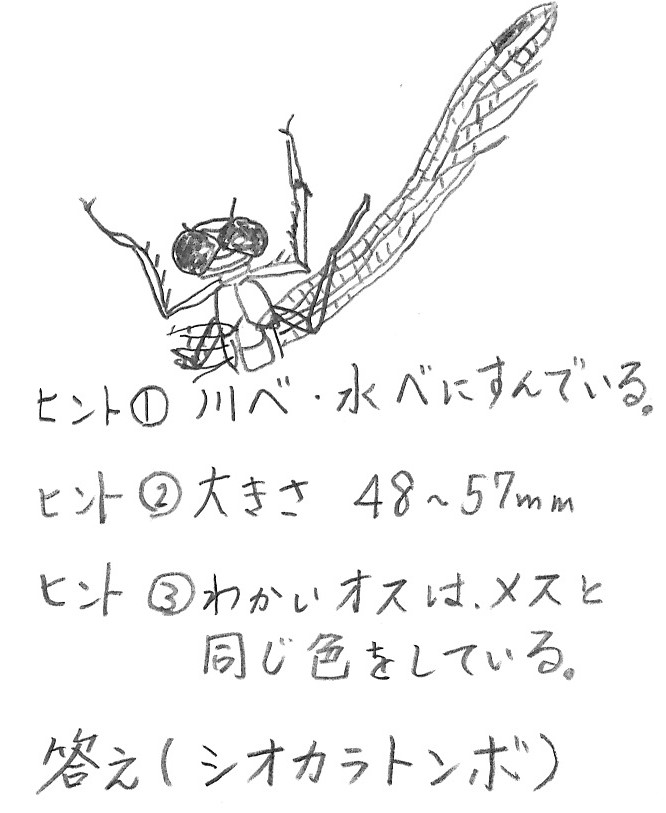 ヒント① 川べ・水べにすんでいる。
ヒント② 大きさ 48～57mm
ヒント③ わかいオスは、メスと
同じ色をしている。
答え(シオカラトンボ)